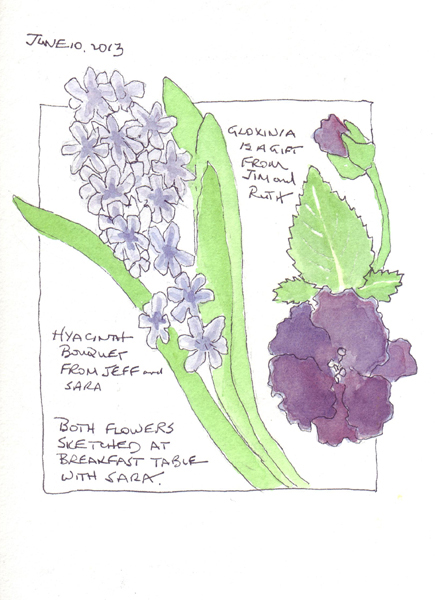 JUNE 10, 2013
GLOXINIA
IS A GIFT
FROM
JIM and
RUTH
HYACINTH
BOUQUET
FROM JEFF and
SARA
BOTH FLOWERS
SKETCHED AT
BREAKFAST TABLE
WITH SARA.